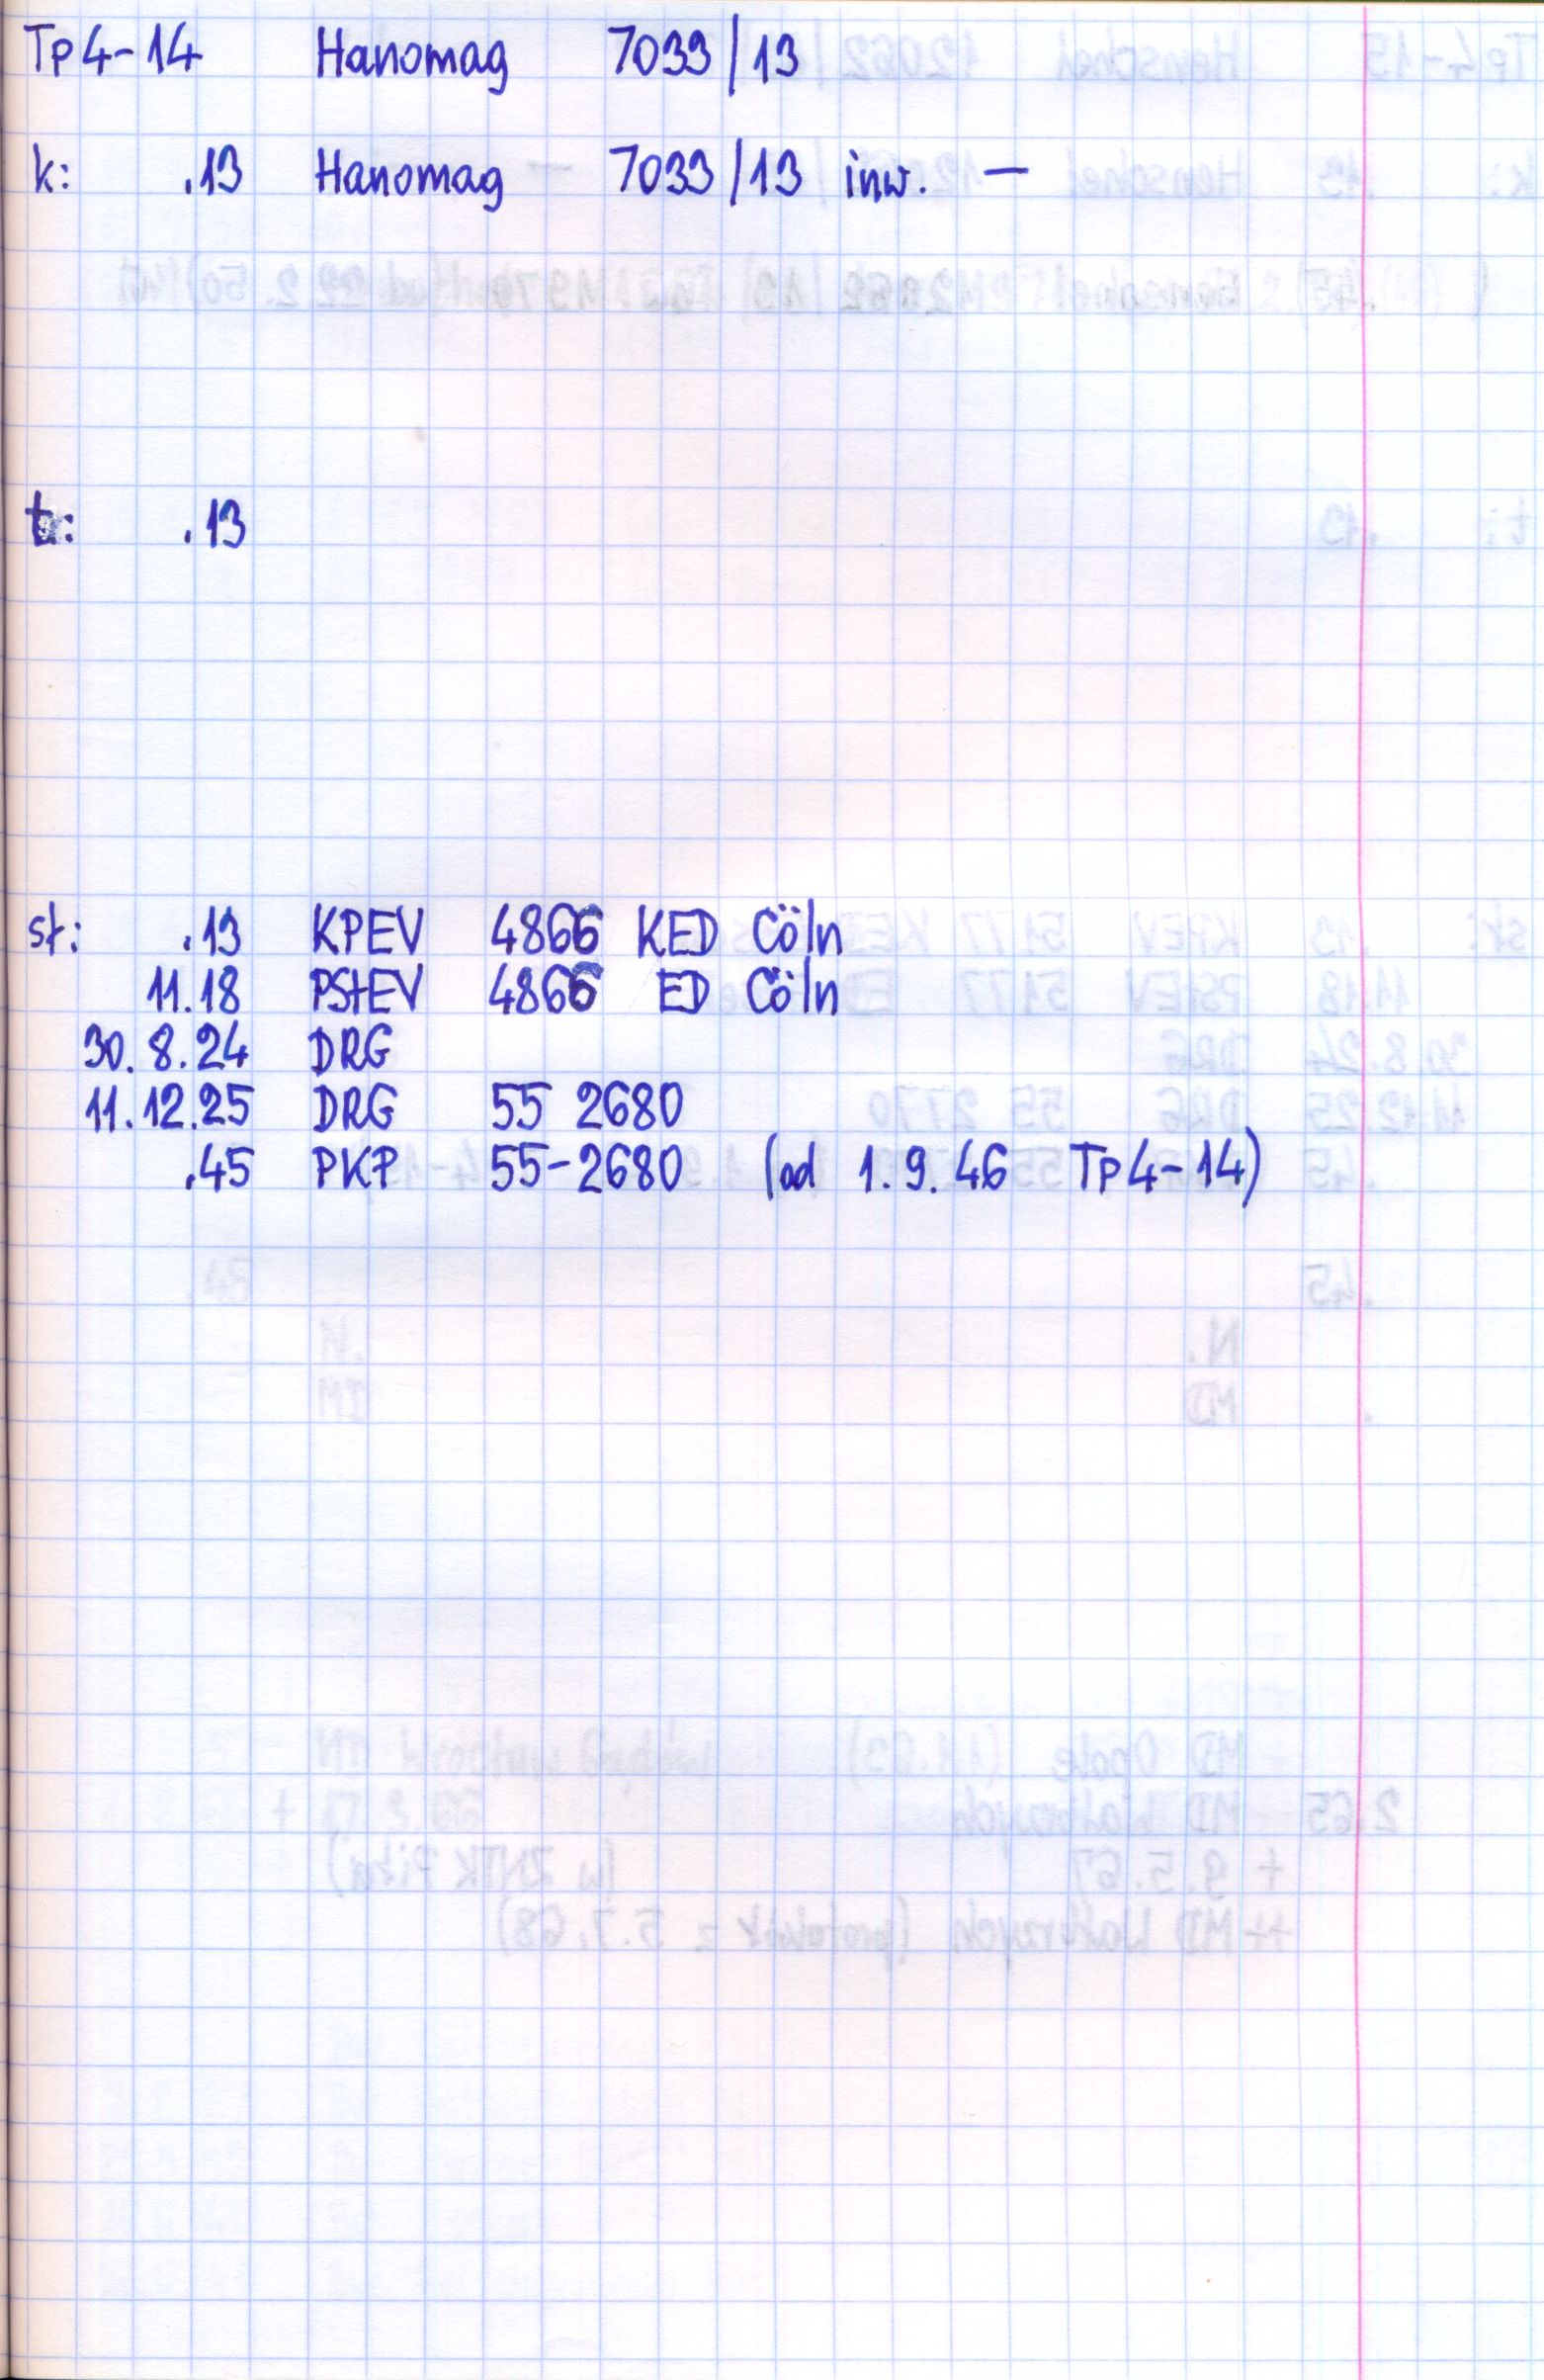 Tp4-14 Hanomag 7033/13
k: .13 Hanomag 7033/13 inw. —
t: .13
st: .13 KPEV 4866 KED Cöln
11.18 PStEV 4866 ED Cöln
30.8.24 DRG
11.12.25 DRG 55 2680
.45 PKP 55-2680 (od 1.9.46 Tp4-14)